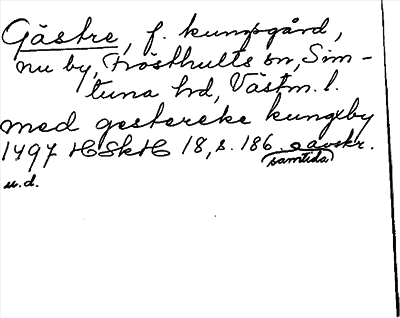 Gästre, f. kungsgård,
nu by, Frösthults sn, Sim-
tuna hd, Västm. l.
med gestereke kungxby
1497 HSkH 18, s. 186. avskr.
samtida
u.d.